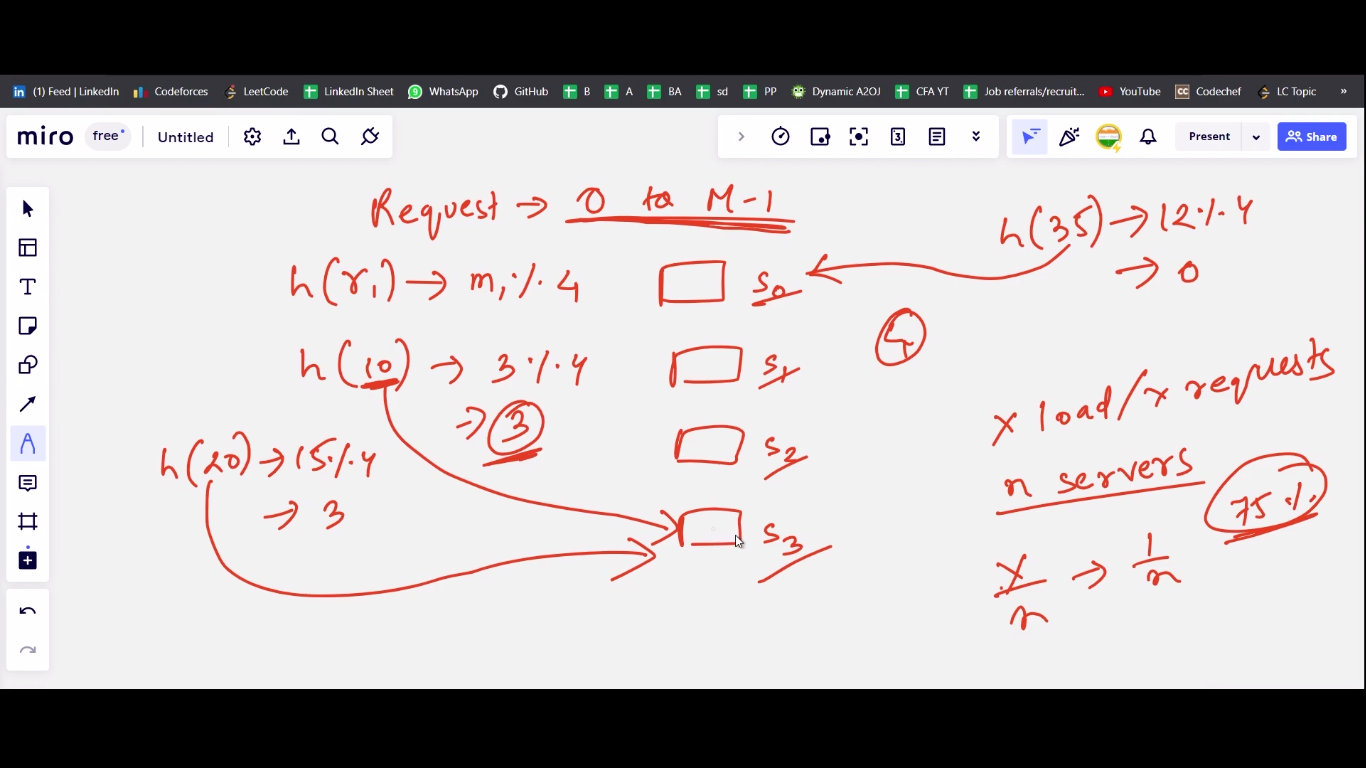 (1) Feed | LinkedIn Codeforces LeetCode LinkedIn Sheet WhatsApp GitHub B A BA sd PP Dynamic A2OJ CFA YT Job referrals/recruit... YouTube CC Codechef LC Topic »
miro free Untitled Present Share
Request → 0 to M-1
h(r1) → m1 % 4
S0
h(35) → 12 % 4
→ 0
h(10) → 3 % 4
→ 3
S1
4
h(20) → 15 % 4
→ 3
S2
S3
x load / x requests
n servers
75 %
x/n → 1/n